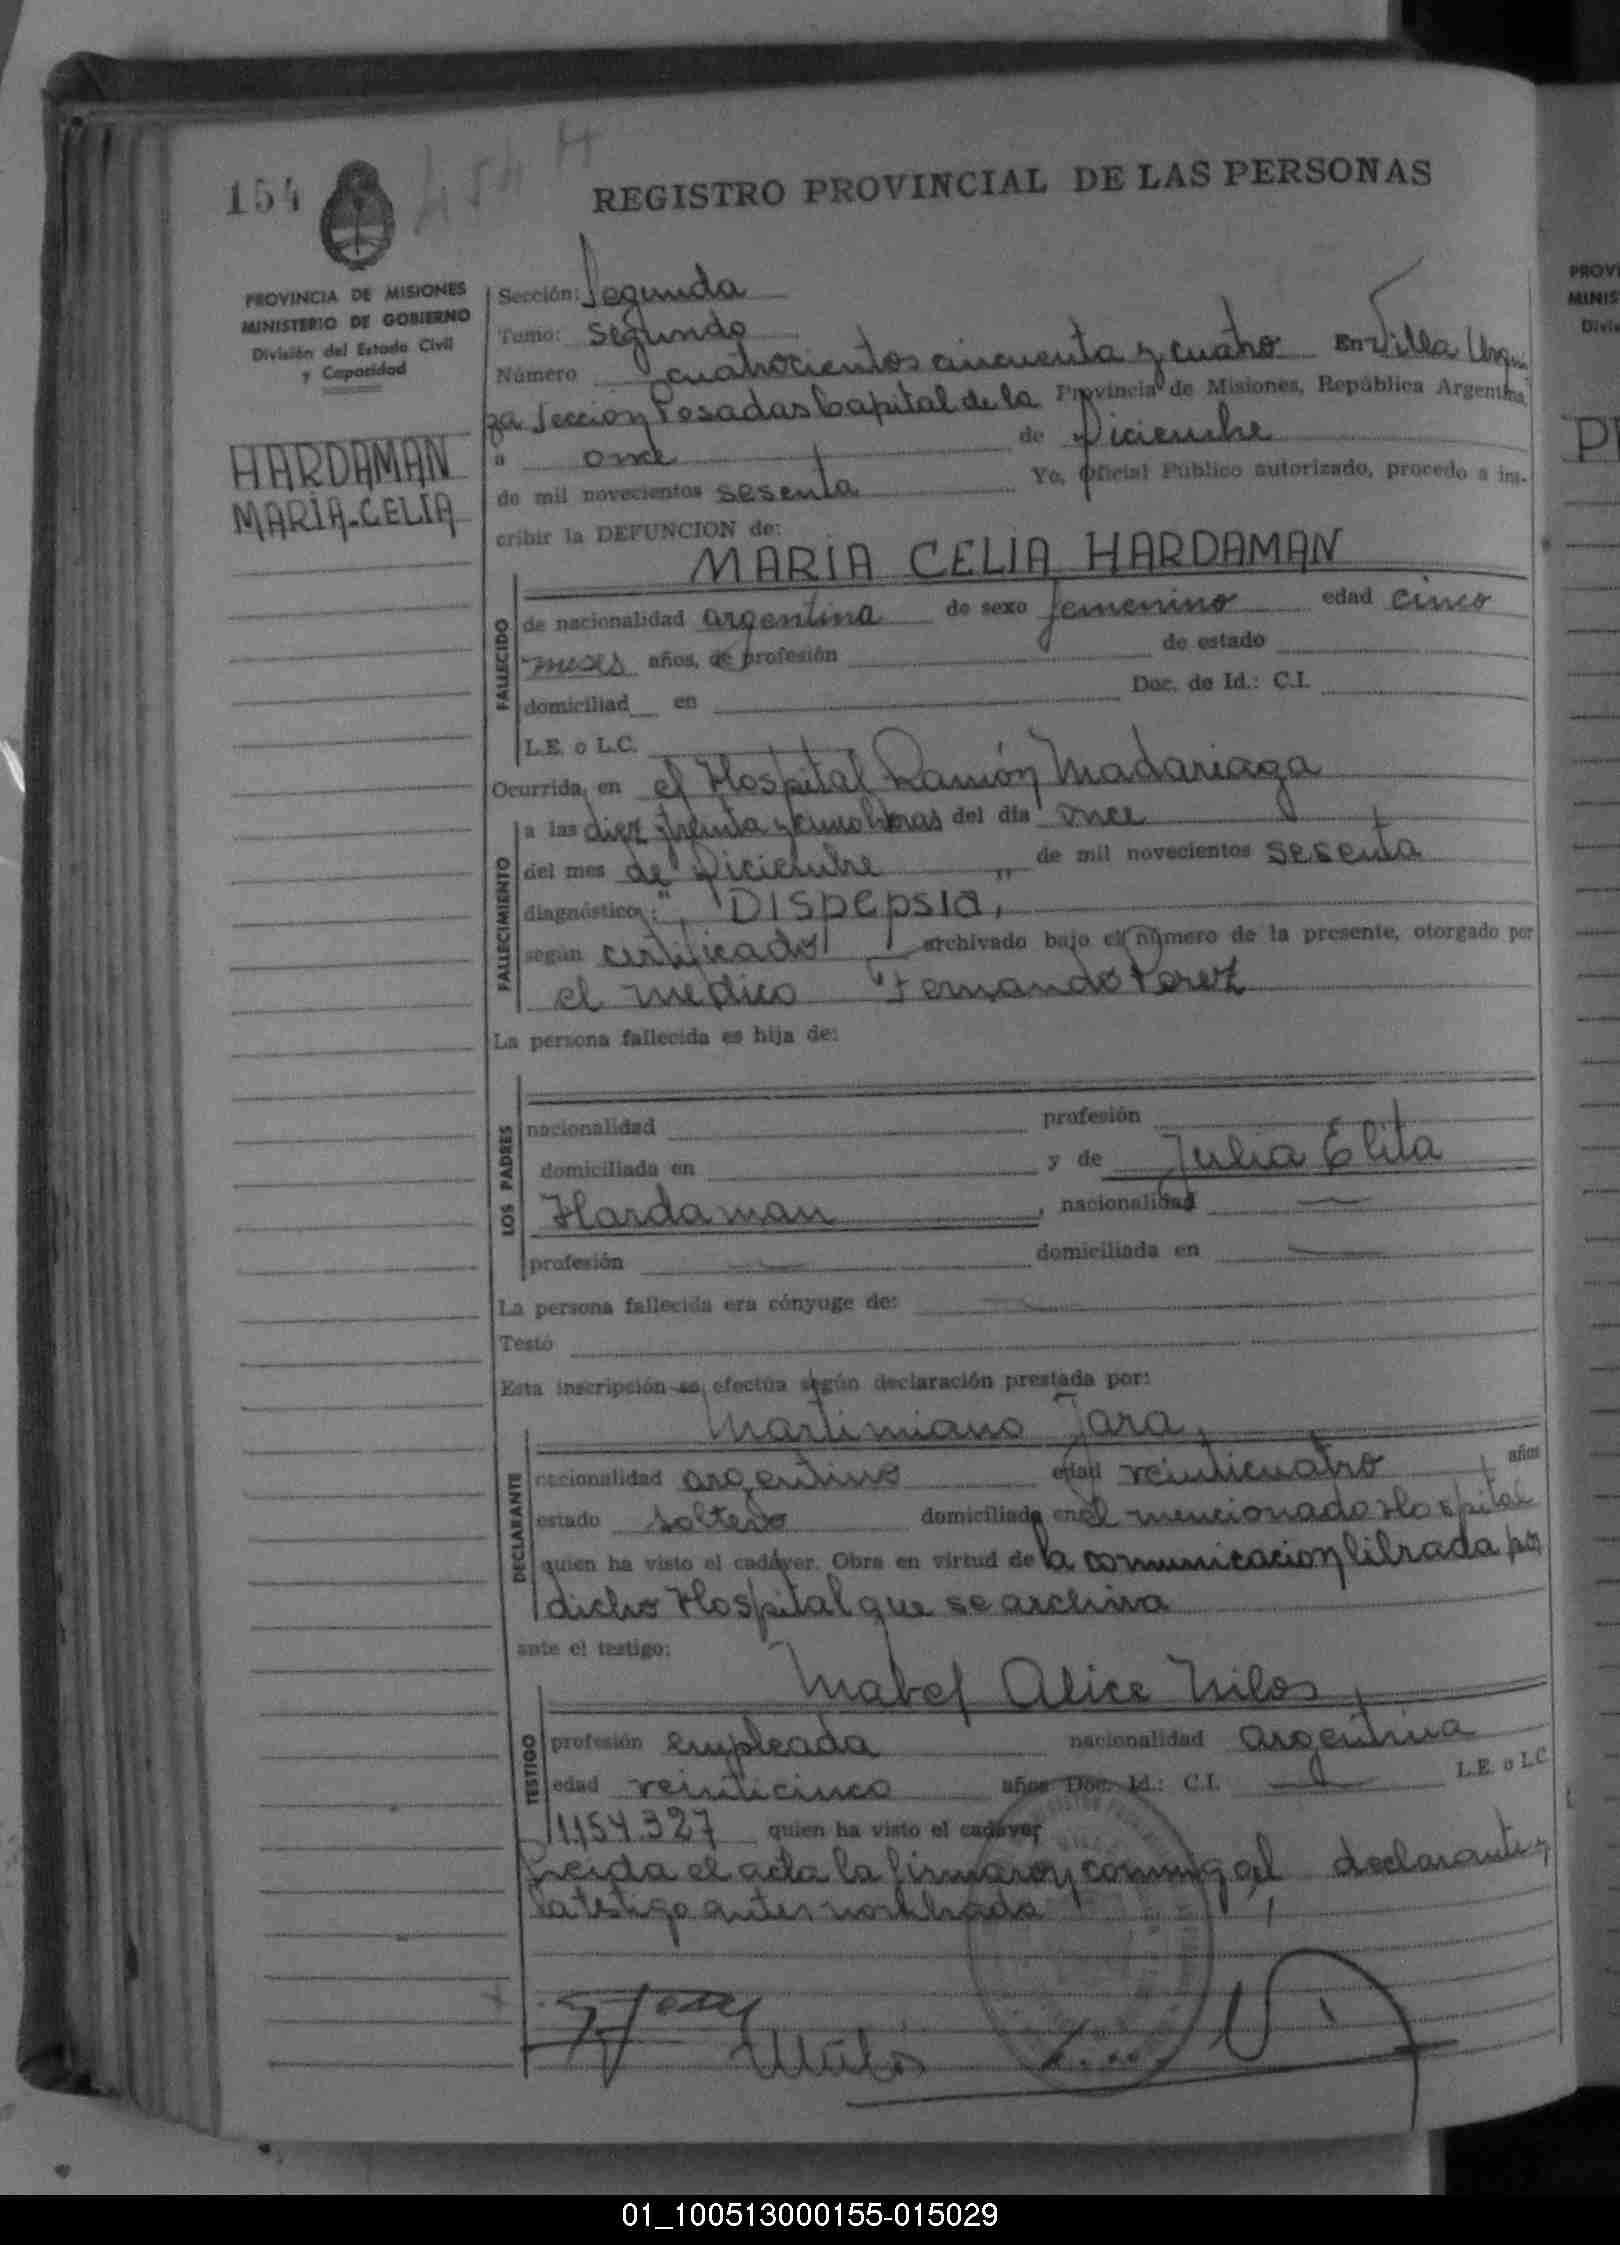 154
454 H
REGISTRO PROVINCIAL DE LAS PERSONAS
PROVINCIA DE MISIONES
MINISTERIO DE GOBIERNO
División del Estado Civil
y Capacidad
HARDAMAN
MARÍA-CELIA
Sección: Segunda
Tomo: Segundo
Número cuatrocientos cincuenta y cuatro En Villa Urqui
za Sección Posadas Capital de la Provincia de Misiones, República Argentina,
a once de Diciembre
de mil novecientos sesenta Yo, Oficial Público autorizado, procedo a ins-
cribir la DEFUNCION de:
MARÍA CELIA HARDAMAN
FALLECIDO
de nacionalidad argentina de sexo femenino edad cinco
meses años, de profesión de estado
domiciliad en Doc. de Id.: C.I.
L.E. o L.C.
Ocurrida en el Hospital Ramón Madariaga
FALLECIMIENTO
a las diez treinta y cinco horas del día once
del mes de Diciembre de mil novecientos sesenta
diagnóstico: "Dispepsia"
según certificado archivado bajo el número de la presente, otorgado por
el médico Fernando Perez
La persona fallecida es hija de:
LOS PADRES
nacionalidad profesión
domiciliada en y de Julia Elita
Hardaman, nacionalidad
profesión domiciliada en
La persona fallecida era cónyuge de:
Testó
Esta inscripción se efectúa según declaración prestada por:
Martimiano Jara,
DECLARANTE
nacionalidad argentino edad veinticuatro años
estado soltero domiciliado en el mencionado Hospital
quien ha visto el cadáver. Obra en virtud de la comunicacion librada por
dicho Hospital que se archiva
ante el testigo:
Mabel Alice Milos,
TESTIGO
profesión empleada nacionalidad argentina
edad veinticinco años Doc. Id.: C.I. L.E. o L.C.
1.154.327 quien ha visto el cadáver
Leida el acta la firmaron conmigo el declarante y
la testigo antes nombrada
PROVI
MINIS
Divis
01_100513000155-015029